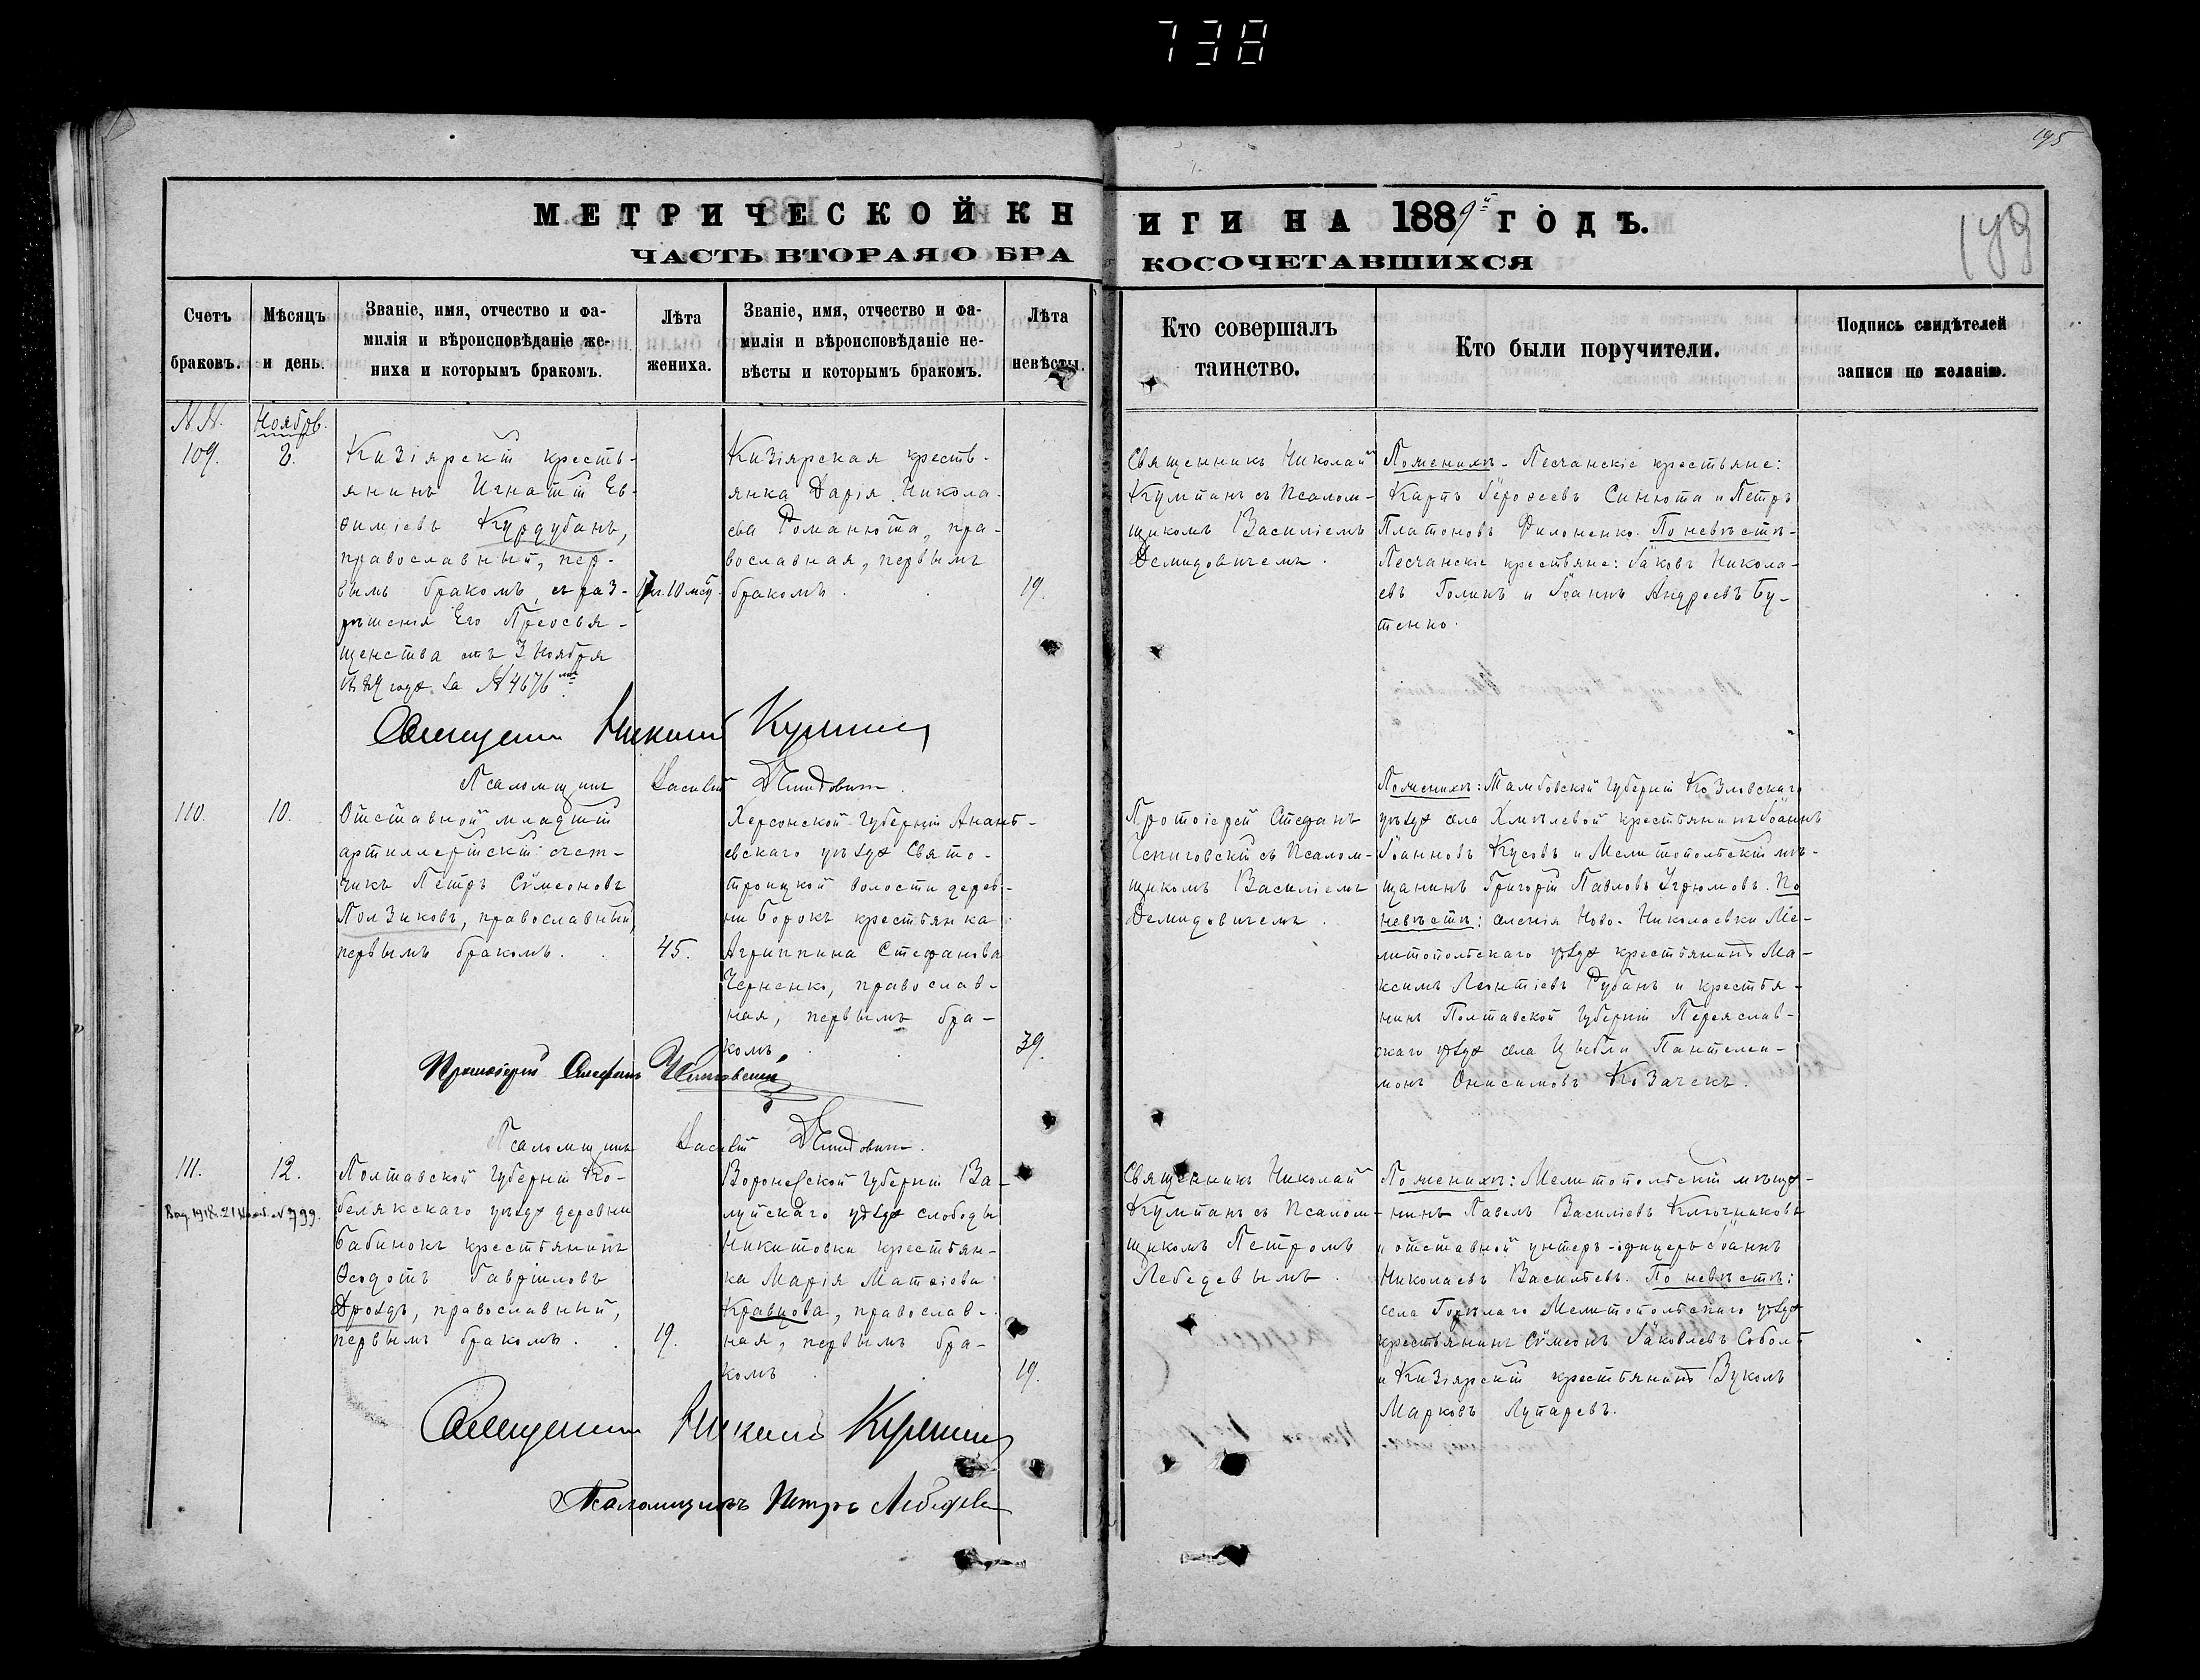 738
195
МЕТРИЧЕСКОЙ КНИГИ НА 1889й ГОДЪ.
ЧАСТЬ ВТОРАЯ О БРАКОСОЧЕТАВШИХСЯ
Счетъ браковъ.
Мѣсяцъ и день.
Званіе, имя, отчество и фамилія и вѣроисповѣданіе жениха и которымъ бракомъ.
Лѣта жениха.
Званіе, имя, отчество и фамилія и вѣроисповѣданіе невѣсты и которымъ бракомъ.
Лѣта невѣсты.
Кто совершалъ таинство.
Кто были поручители.
Подпись свидѣтелей записи по желанію.
N.N.
Ноябрь.
109.
Кизіярскій кресть-
янинъ Игнатій Ев-
ѳиміевъ Курдубанъ,
православный, пер-
вымъ бракомъ, съ раз-
рѣшенія Его Преосвя-
щенства отъ 3 Ноября
1889 года за № 4676
17 л. 10 мѣс.
Кизіярская кресть-
янка Дарія Никола-
ева Романюта, пра-
вославная, первымъ
бракомъ.
19.
Священникъ Николай
Кулпанъ съ Псалом-
щикомъ Василіемъ
Демидовичемъ.
По женихѣ - Песчанскіе крестьяне:
Карпъ Іероѳеевъ Синюта и Петръ
Платоновъ Филоненко. По невѣстѣ -
Песчанскіе крестьяне: Іаковъ Никола-
евъ Голикъ и Іоаннъ Андреевъ Бу-
тенко.
Священникъ Николай
Псаломщикъ Василій Демидовичъ.
110.
10.
Отставной младшій
артиллерійскій счет-
чикъ Петръ Сѵмеоновъ
Ползиковъ, православный,
первымъ бракомъ.
45.
Херсонской губерніи Анань-
евскаго уѣзда Свято-
троицкой волости дерев-
ни Борокъ крестьянка
Агриппина Стефанова
Черненко, православ-
ная, первымъ бра-
комъ
39.
Протоіерей Стефанъ
Чепиговскій съ Псалом-
щикомъ Василіемъ
Демидовичемъ.
По женихѣ: Тамбовской губерніи Козловскаго
уѣзда села Хмѣлевой крестьянинъ Іоаннъ
Іоанновъ Кусовъ и Мелитопольскій мѣ-
щанинъ Григорій Павловъ Угрюмовъ. По
невѣстѣ: селенія Ново-Николаевки Ме-
литопольскаго уѣзда крестьянинъ Ма-
ксимъ Леонтіевъ Рубанъ и крестья-
нинъ Полтавской губерніи Переяслав-
скаго уѣзда села Цыбли Пантелеи-
монъ Онисимовъ Козачекъ.
Протоіерей Стефанъ Чепиговскій
Псаломщикъ Василій Демидовичъ.
111.
12.
Полтавской губерніи Ко-
белякскаго уѣзда деревни
Бабинокъ крестьянинъ
Ѳеодотъ Гавріиловъ
Дроздъ, православный,
первымъ бракомъ.
19.
Воронежской губерніи Ва-
луйскаго уѣзда слободы
Никитовки крестьян-
ка Марія Матѳіева
Кравцова, православ-
ная, первымъ бра-
комъ
19.
Священникъ Николай
Кулпанъ съ Псалом-
щикомъ Петромъ
Лебедевымъ.
По женихѣ: Мелитопольскій мѣща-
нинъ Павелъ Василіевъ Ключниковъ
и отставной унтеръ-офицеръ Іоаннъ
Николаевъ Васильевъ. По невѣстѣ:
села Горѣлаго Мелитопольскаго уѣзда
крестьянинъ Сѵмеонъ Іаковлевъ Соболь
и Кизіярскій крестьянинъ Вуколъ
Марковъ Лупаревъ.
Священникъ Николай
Псаломщикъ Петръ Лебедевъ